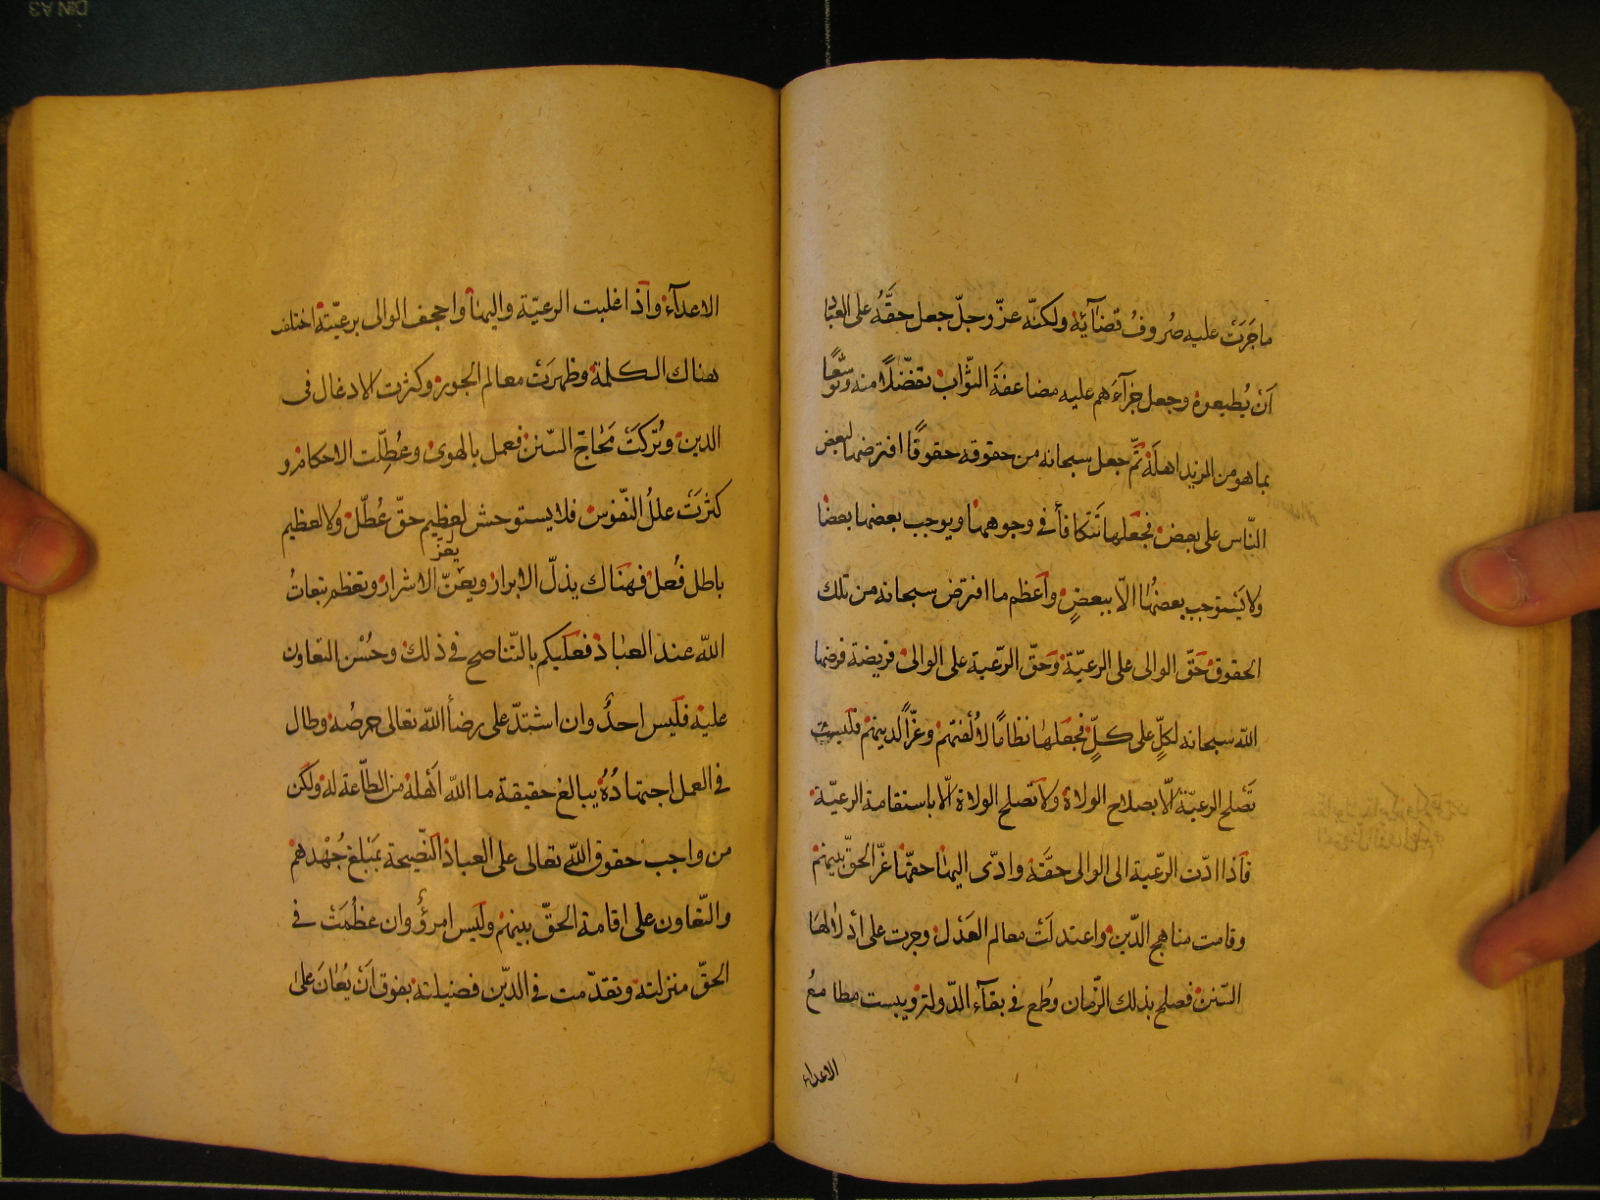 ما جَرَتْ عليه صُروفُ قضآئِه ولكنّه عزّ وجلّ جعل حقَّهُ على العباد
اَنْ يُطيعوه وجعل جزآءَهم عليه مضاعفةَ الثّواب تفضّلًا منه وتوسّعًا
بما هو من المزيد اهلَهُ ثمّ جعل سبحانه من حقوقه حقوقًا افترضها لبعض
النّاس على بعض فجعلها تَتكافأ فى وجوهها ويوجب بعضها بعضا
ولا يَستوجب بعضُها الّا ببعضٍ وأعظم ما افترض سبحانه من تلك
الحقوق حَقّ الوالى على الرعيّة وَحَقّ الرّعية على الوالى فريضة فرضها
الله سبحانه لكلٍّ على كلٍّ فجعلها نظامًا لاُلفتهم وعزّاً لدينهم فليست
تَصلح الرعيّة الّا بصلاح الولاة ولا تصلح الولاة الّا باستقامة الرعيّة
فاَذا ادّت الرعّية الى الوالى حقَّه وادّى اليها حقّها عزّ الحقّ بينهم
وقامت مناهج الدّين واعتدلَتْ معالم العَدْل وجرت على أذلالها
السّنن فصلح بذلك الزّمان وطُمع فى بقآء الدّولة ويبست مطامعُ
الاعداء
الاعدآء واَذا غلبت الرعيّة واليها واجحف الوالى برعيّته اختلف
هناك الكلمة وظهرَتْ معالم الجور وكثرت الادغال فى
الدين وتُركَتْ مَحاجّ السّنن فعمل بالهوى وعُطِّلت الاحكام و
كثرَتْ عللُ النّفوس فلا يستوحش لعظيم حقّ عُطّل ولا لعظيم
يعَزّ
باطل فُعل فهناك يذلّ الابرار ويعزّ الاشرار وتعظم تبعاتُ
الله عند العباد فعليكم بالتّناصح فى ذلك وحُسْن التعاون
عليه فليس احدٌ وان اشتدّ على رضأ الله تعالى حرصُه وطال
فى العمل اجتهادُهُ يبالغ حقيقة ما الله اَهله من الطّاعة له ولكن
من واجب حقوق الله تعالى على العباد النّصيحة بمَبْلغ جُهْدهم
والتّعاون على اقامة الحقّ بينهم وليس امرؤٌ وان عظُمَتْ فى
الحقّ منزلته وتقدّمت فى الدّين فضيلته بفوق اَنْ يُعانَ على